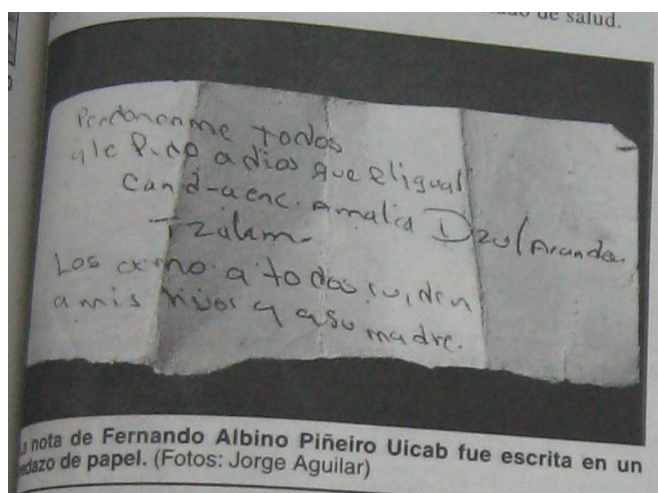 do de salud.
Perdonenme todos
y le Pido a dios que el igual
Can d-a enc. Amalia Dzul Aranda.
Tzulam-
Los exmo a todos cuiden
a mis hijos y a su madre.
nota de Fernando Albino Piñeiro Uicab fue escrita en un
edazo de papel. (Fotos: Jorge Aguilar)